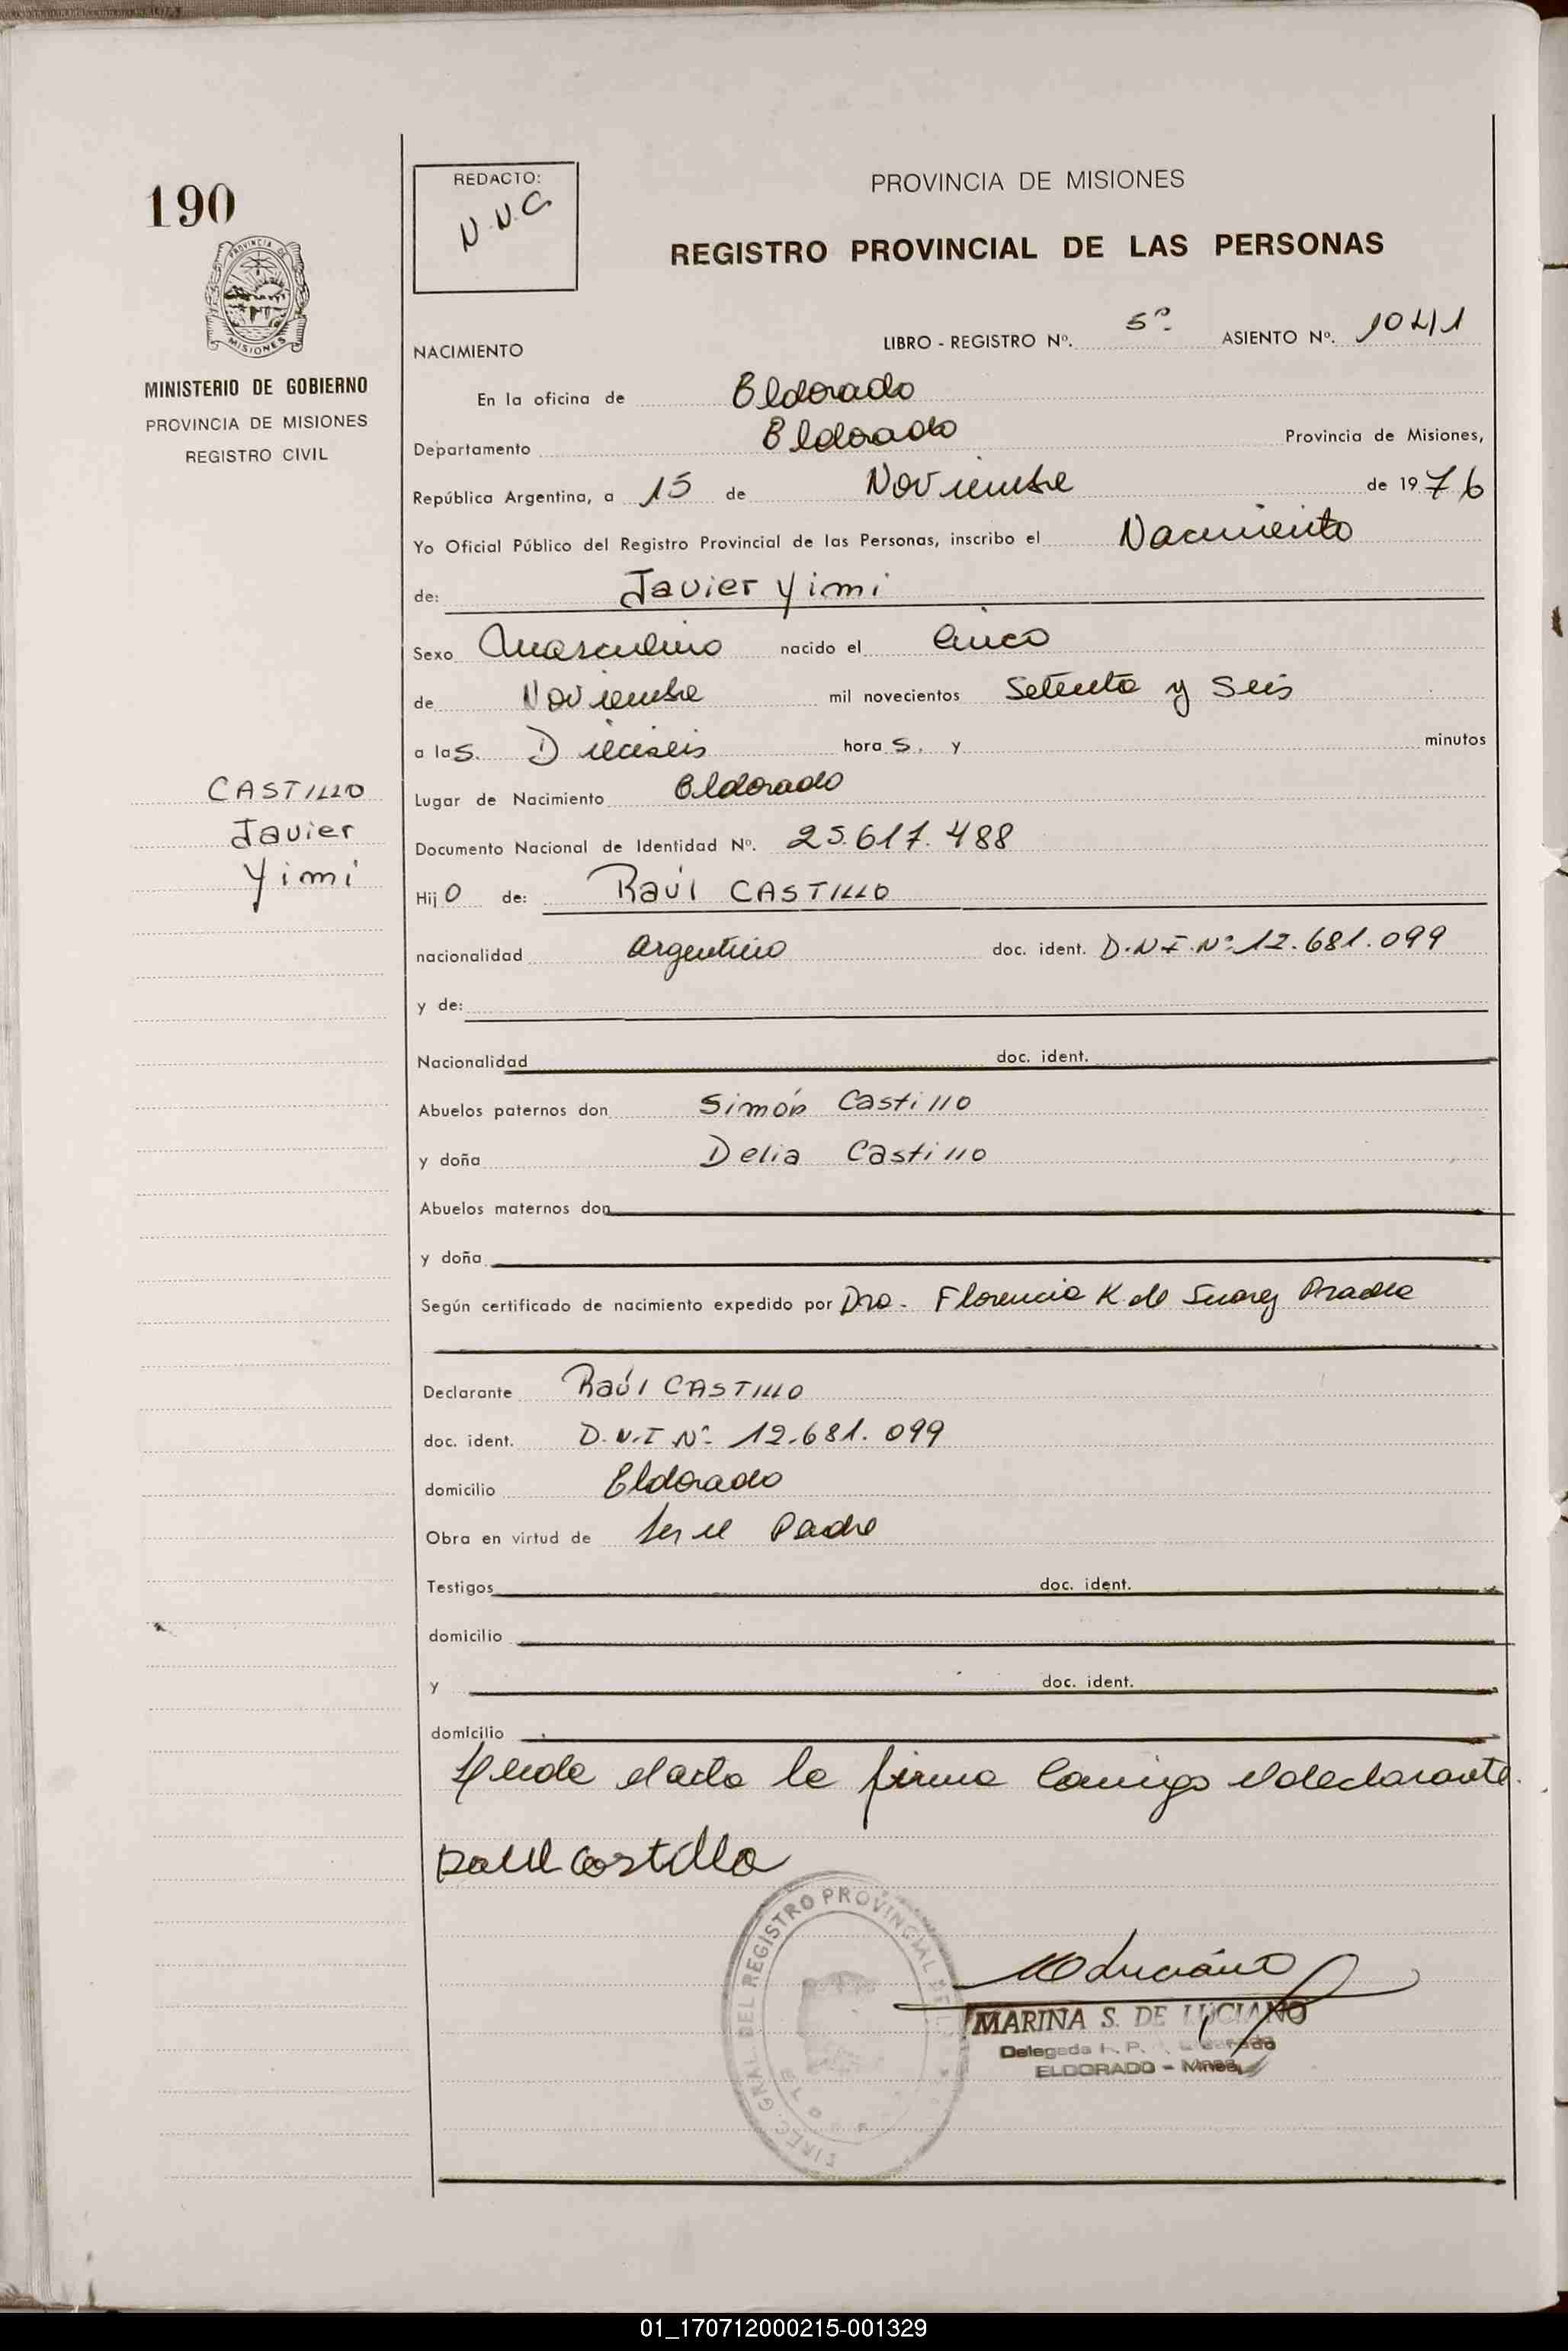 190
REDACTO:
N.N.G
PROVINCIA DE MISIONES
REGISTRO PROVINCIAL DE LAS PERSONAS
PROVINCIA DE
MISIONES
MINISTERIO DE GOBIERNO
PROVINCIA DE MISIONES
REGISTRO CIVIL
NACIMIENTO LIBRO - REGISTRO Nº. 5º. ASIENTO Nº. 1041
En la oficina de Eldorado
Departamento Eldorado Provincia de Misiones,
República Argentina, a 15 de Noviembre de 1976
Yo Oficial Público del Registro Provincial de las Personas, inscribo el Nacimiento
de: Javier Yimi
Sexo Masculino nacido el Cinco
de Noviembre mil novecientos Setenta y Seis
a las. Dieciseis horas. y minutos
CASTILLO
Javier
Yimi
Lugar de Nacimiento Eldorado
Documento Nacional de Identidad Nº. 25.617.488
Hijo de: Raúl CASTILLO
nacionalidad Argentino doc. ident. D.N.I.Nº: 12.681.099
y de:
Nacionalidad doc. ident.
Abuelos paternos don Simón Castillo
y doña Delia Castillo
Abuelos maternos don
y doña
Según certificado de nacimiento expedido por Dra. Florencia K de Suarez
Declarante Raúl CASTILLO
doc. ident. D.N.I Nº 12.681.099
domicilio Eldorado
Obra en virtud de Ser el Padre
Testigos doc. ident.
domicilio
y doc. ident.
domicilio
Leida el acta la firma Conmigo el declarante.
Raul Castillo
DIREC. GRAL. DEL REGISTRO PROVINCIAL DE
MARINA S. DE LUCIANO
Delegada R. P.
ELDORADO - Mnes.
01_170712000215-001329